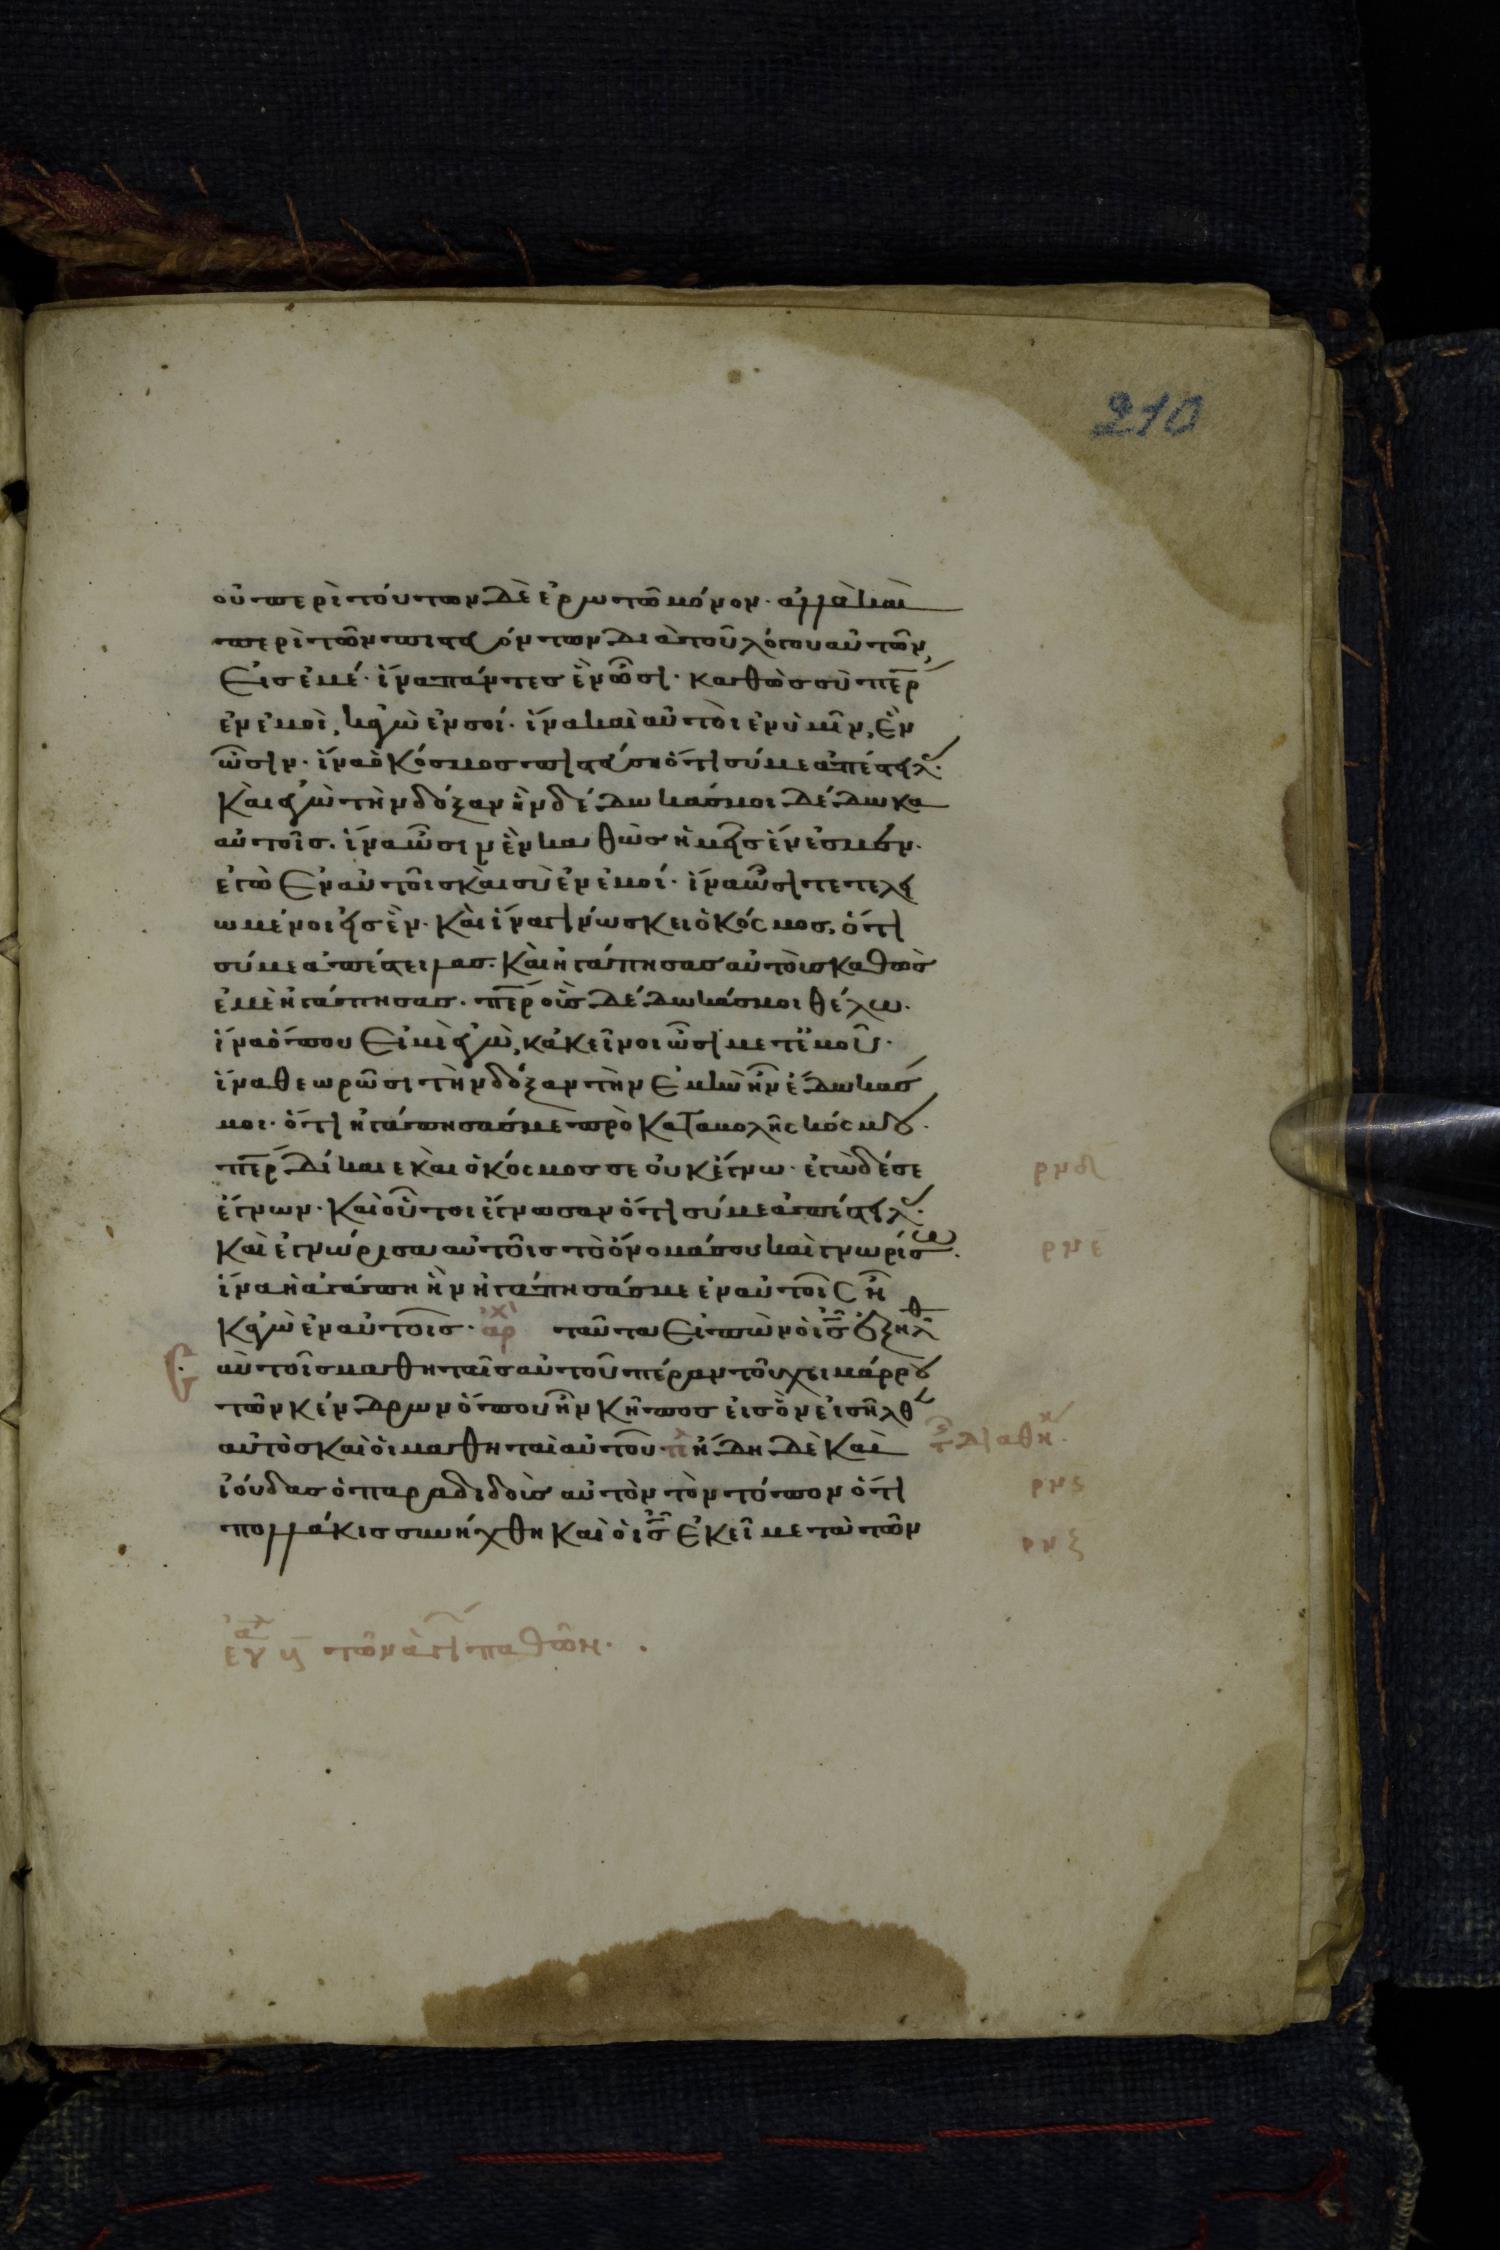 210
οὐ περὶ τούτων δὲ ἐρωτῶ μόνον· ἀλλὰ καὶ
περὶ τῶν πιστευόντων διὰ τοῦ λόγου αὐτῶν,
εἰς ἐμέ· ἵνα πάντες ἓν ὦσι· καθὼς σὺ περ
ἐν ἐμοὶ, κἀγὼ ἐν σοί· ἵνα καὶ αὐτοὶ ἐν ὑμῖν, ἓν
ὦσιν· ἵνα ὁ κόσμος πιστεύσῃ ὅτι σύ με ἀπέστειλ·
καὶ ἐγὼ τὴν δόξαν ἣν δέδωκάς μοι δέδωκα
αὐτοῖς· ἵνα ὦσιν ἓν καθὼς ἡμεῖς ἕν ἐσμέν·
ἐγὼ ἐν αὐτοῖς καὶ σὺ ἐν ἐμοί· ἵνα ὦσι τετελει
ωμένοι εἰς ἓν· καὶ ἵνα γινώσκει ὁ κόσμος, ὅτι
σύ με ἀπέστειλας· καὶ ἠγάπησας αὐτοὺς καθὼς
ἐμὲ ἠγάπησας· περ οὓς δέδωκάς μοι θέλω·
ἵνα ὅπου εἰμὶ ἐγὼ, κἀκεῖνοι ὦσι μετ ἐμοῦ·
ἵνα θεωρῶσι τὴν δόξαν τὴν ἐμὴν ἣν ἔδωκας
μοι· ὅτι ἠγάπησάς με πρὸ καταβολῆς κόσμου·
περ δίκαιε καὶ ὁ κόσμος σε οὐκ ἔγνω· ἐγὼ δέ σε
ἔγνων· καὶ οὗτοι ἔγνωσαν ὅτι σύ με ἀπέστειλ·
ρνδ
καὶ ἐγνώρισα αὐτοῖς τὸ ὄνομά σου καὶ γνωρίσω·
ρνε
ἵνα ἡ ἀγάπη ἣν ἠγάπησάς με ἐν αὐτοῖς ᾖ
κἀγὼ ἐν αὐτοῖς· ἀρχ ταῦτα εἰπὼν ὁ ις ἐξηλθ
αὐτοῖς μαθηταῖς αὐτοῦ πέραν τοῦ χειμάρρου
τῶν κένδρων ὅπου ἦν κῆπος εἰς ὃν εἰσῆλθ
αὐτὸς καὶ οἱ μαθηταὶ αὐτοῦ· ἤδη δὲ καὶ
ἰούδας ὁ παραδιδοὺς αὐτὸν τὸν τόπον ὅτι
ρνς
πολλάκις συνήχθη καὶ ὁ ις ἐκεῖ μετὰ τῶν
ρνζ
τῶν ἁγί παθῶν·